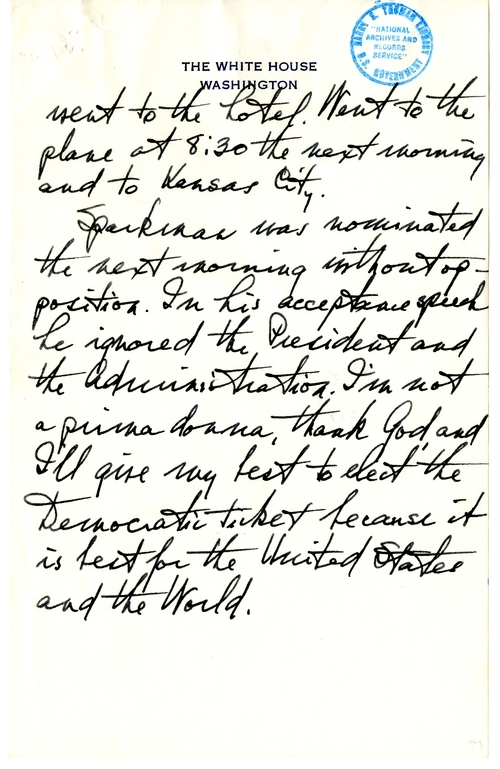 HARRY S. TRUMAN LIBRARY
"NATIONAL
ARCHIVES AND
RECORDS
SERVICE"
U.S. GOVERNMENT
THE WHITE HOUSE
WASHINGTON
went to the hotel. Went to the
plane at 8:30 the next morning
and to Kansas City.
Sparkman was nominated
the next morning without op-
position. In his acceptance speech
he ignored the President and
the Administration. I'm not
a prima donna, thank God, and
I'll give my best to elect the
Democratic ticket because it
is best for the United States
and the World.